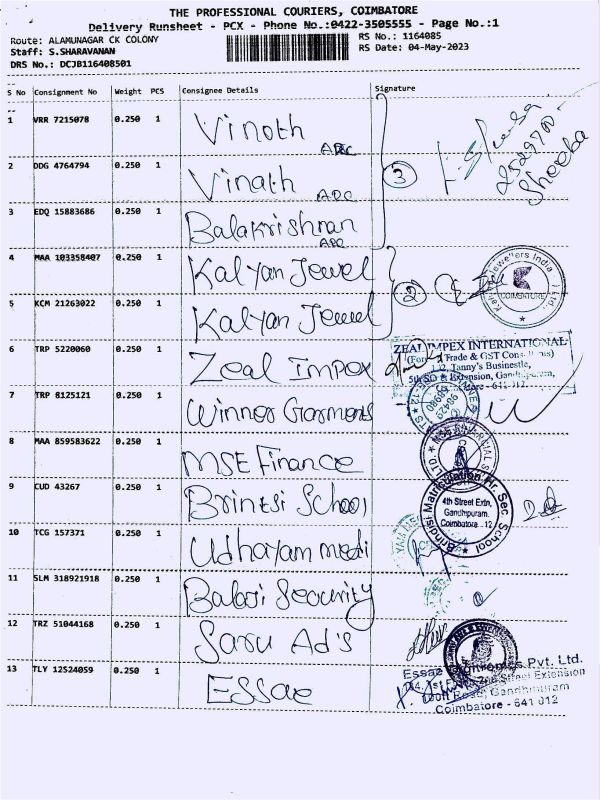 THE PROFESSIONAL COURIERS, COIMBATORE
Delivery Runsheet - PCX - Phone No.:0422-3505555 - Page No.:1
Route: ALAMUNAGAR CK COLONY
Staff: S.SHARAVANAN
DRS No.: DCJB116408501
RS No.: 1164085
RS Date: 04-May-2023
S No Consignment No Weight PCS Consignee Details Signature
1 VRR 7215078 0.250 1 Vinoth
2 DDG 4764794 0.250 1 Vinath ADC
3 EDQ 15883686 0.250 1 Balakrishnan
3
Sheeba
4 MAA 103358407 0.250 1 Kalyan Jewel
5 KCM 21263022 0.250 1 Kalyan Jewel
2
Jewellers India
COIMBATORE
6 TRP 5220060 0.250 1 Zeal Impex
ZEAL IMPEX INTERNATIONAL
Trade & GST
Tanny's Businestle,
Extension,
7 TRP 8125121 0.250 1 Winner Garments
8 MAA 859583622 0.250 1 MSE Finance
9 CUD 43267 0.250 1 Brintsi School
Brindisi Matriculation Hr. Sec. School
4th Street Extn,
Gandhipuram,
Coimbatore - 12
10 TCG 157371 0.250 1 Udhayam medi
11 SLM 318921918 0.250 1 Balaji Security
12 TRZ 51044168 0.250 1 Saru Ad's
13 TLY 12524059 0.250 1 Essae
Essae Pvt. Ltd.
Street Extension
Gandhipuram
Coimbatore - 641 012